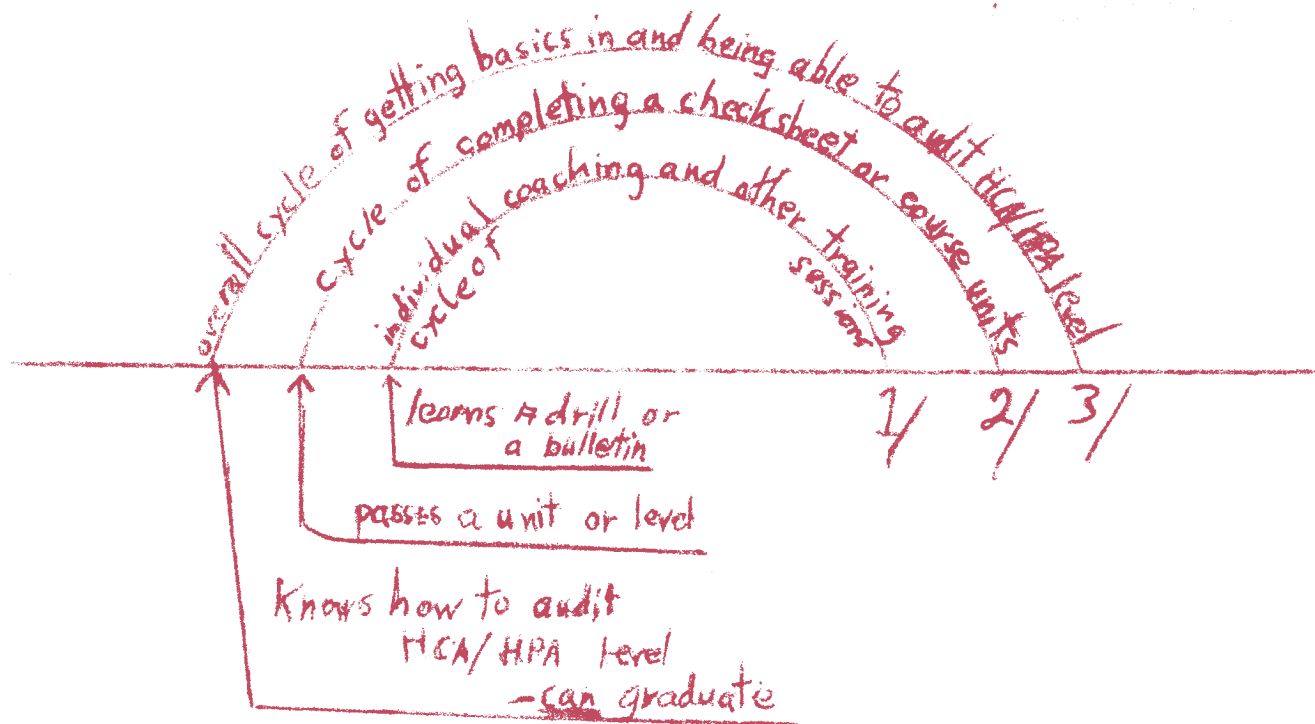 overall cycle of getting basics in and being able to audit HCA/HPA level
cycle of completing a checksheet or course units
individual coaching and other training
cycle of
sessions
1/ 2/ 3/
learns a drill or
a bulletin
passes a unit or level
Knows how to audit
HCA/HPA level
- can graduate